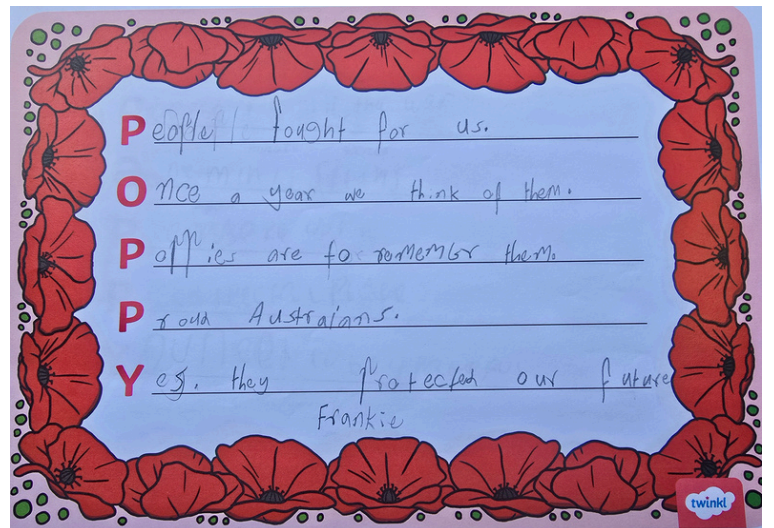 People fought for us.
Once a year we think of them.
Poppies are to remember them.
Proud Austraians.
Yes. they protected our future
Frankie
twinkl